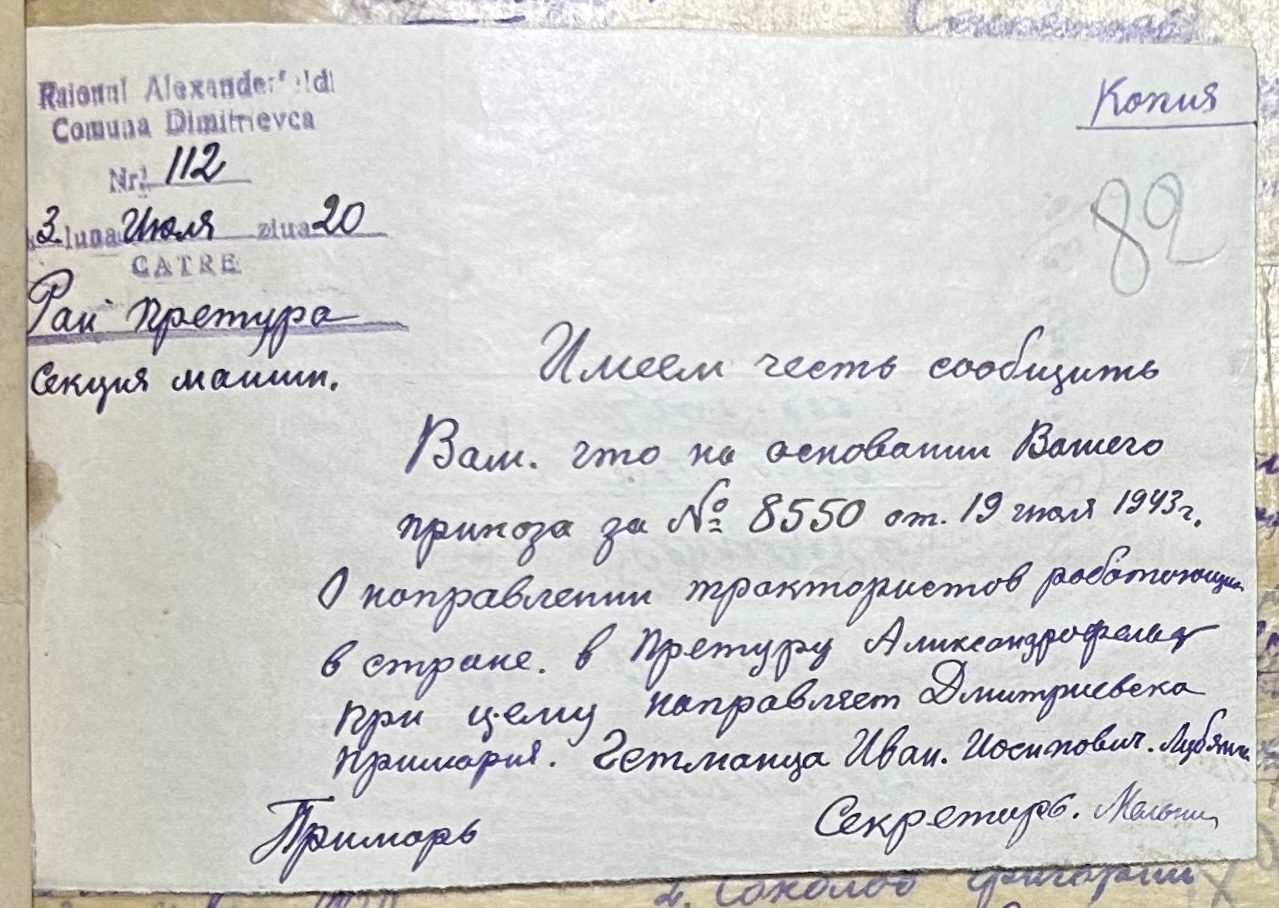 Копия
82
Raionul Alexanderfeld
Comuna Dimitrievca
Nr. 112
3 luna Июля ziua 20
CATRE
Рай Претура
Секция машин.
Имеем честь сообщить
Вам. что на основании Вашего
приказа за № 8550 от. 19 июля 1943 г.
О направлении трактористов работающих
в стране. в Претуру Александрофельд
при цему направляет Дмитриевска
Примария. Гетманца Иван. Иосипович.
Примарь
Секретарь.
2. Соколов Григорий